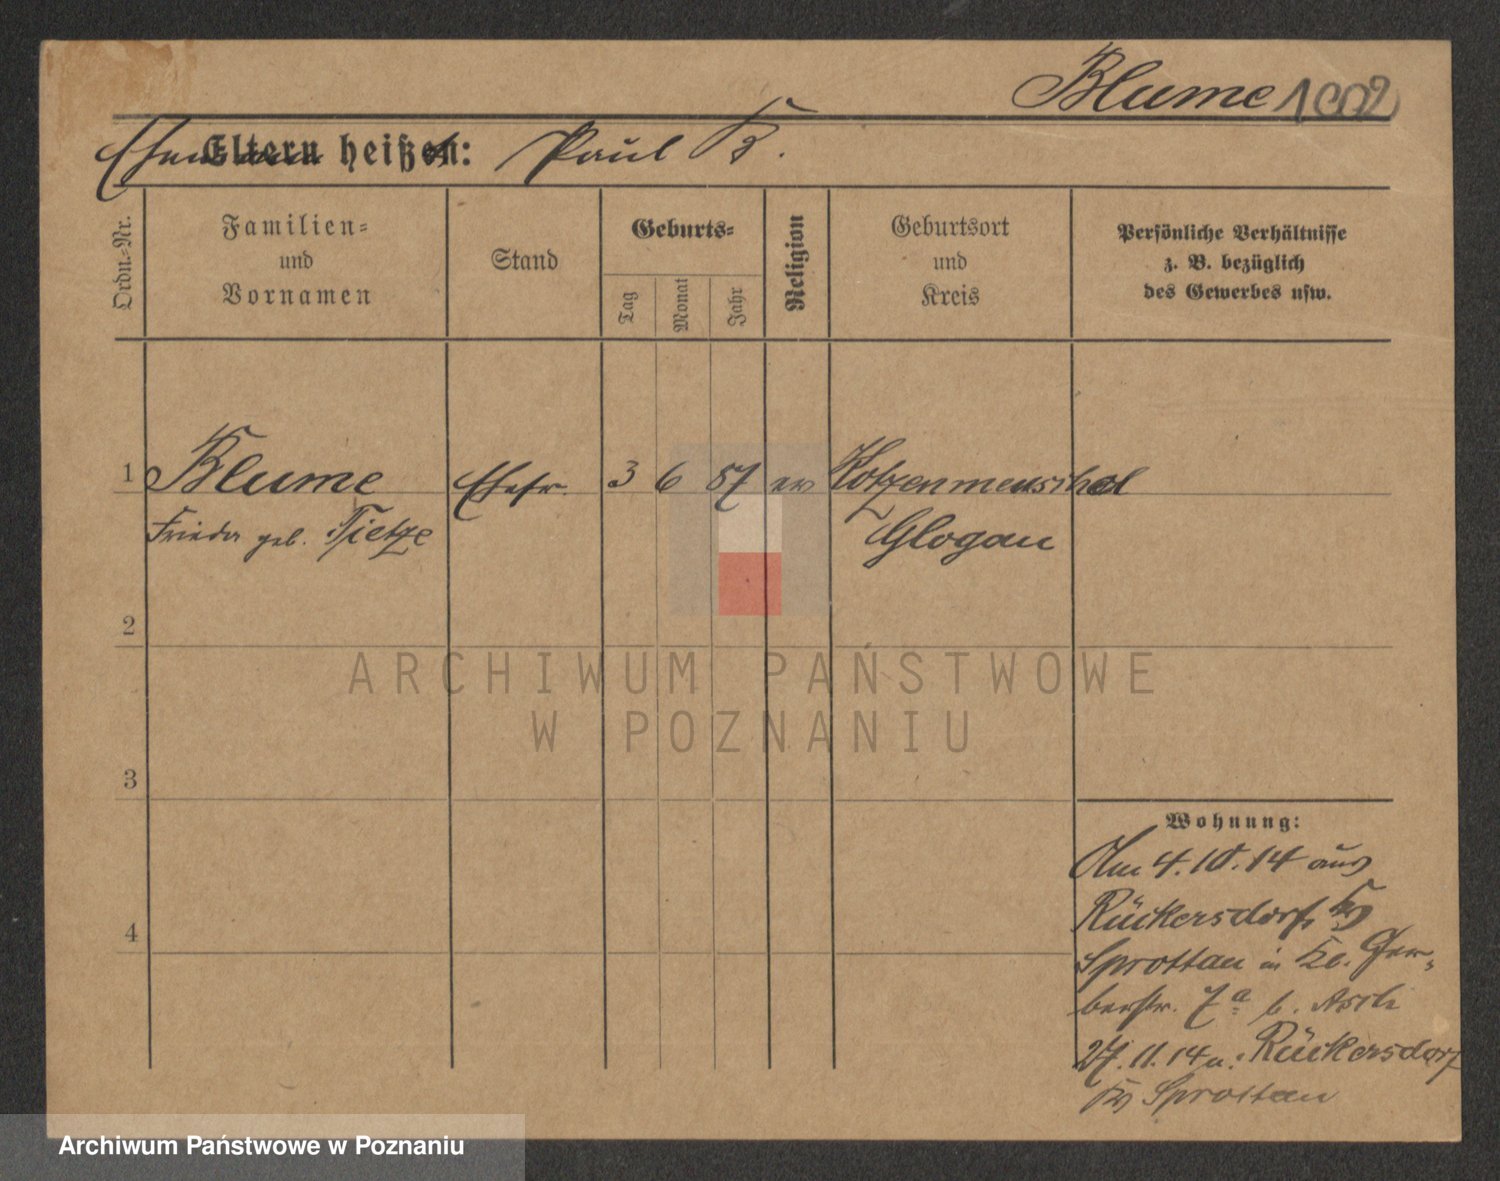 Blume 1002
Eltern heißen: Paul B.
Ordn.-Nr.
Familien-
und
Vornamen
Stand
Geburts-
Tag
Monat
Jahr
Religion
Geburtsort
und
Kreis
Persönliche Verhältnisse
z. B. bezüglich
des Gewerbes usw.
1 Blume Ehefr. 3 6 87 ev
Frieda geb. Tietze Glogau
2
ARCHIWUM PAŃSTWOWE
W POZNANIU
3
Wohnung:
Am 4.10.14 aus
Rückersdorf, Kr
4
Sprottau in Kl. Ger-
berstr. 7a b.
27.11.14 n. Rückersdorf
Kr Sprottau
Archiwum Państwowe w Poznaniu